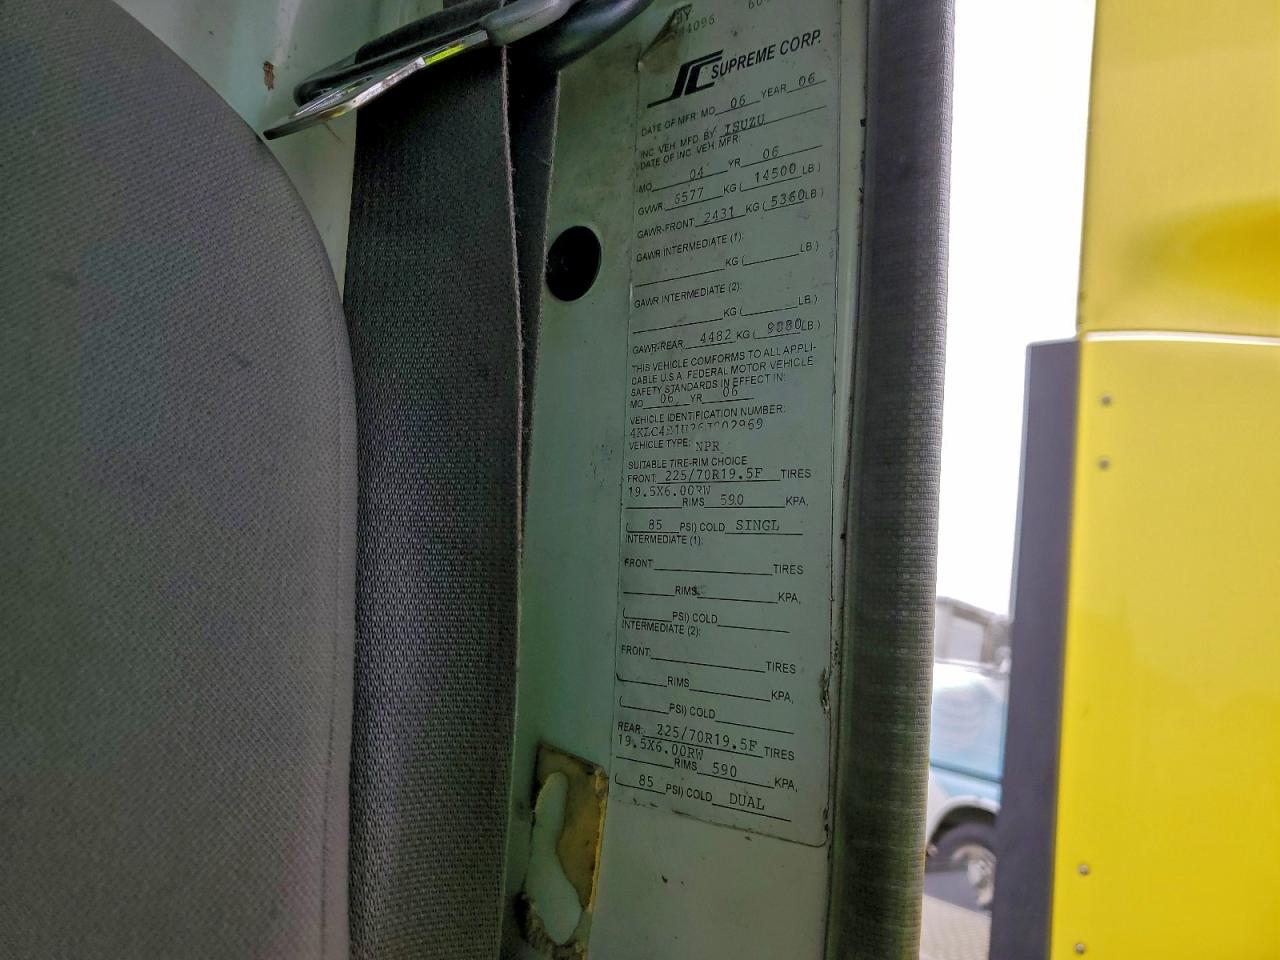 BY
4096
SUPREME CORP.
DATE OF MFR: MO 06 YEAR 06
INC. VEH. MFD BY ISUZU
DATE OF INC. VEH. MFR:
MO 04 YR 06
GVWR 6577 KG ( 14500 LB)
GAWR-FRONT 2431 KG ( 5360 LB)
GAWR INTERMEDIATE (1):
KG ( LB.)
GAWR INTERMEDIATE (2):
KG ( LB.)
GAWR-REAR 4482 KG ( 9880 LB.)
THIS VEHICLE COMFORMS TO ALL APPLI-
CABLE U.S.A. FEDERAL MOTOR VEHICLE
SAFETY STANDARDS IN EFFECT IN:
MO 06 YR 06
VEHICLE IDENTIFICATION NUMBER:
VEHICLE TYPE: NPR
SUITABLE TIRE-RIM CHOICE
FRONT: 225/70R19.5F TIRES
19.5X6.00RW
RIMS 590 KPA,
( 85 PSI) COLD SINGL
INTERMEDIATE (1):
FRONT TIRES
RIMS KPA,
( PSI) COLD
INTERMEDIATE (2):
FRONT: TIRES
RIMS KPA,
( PSI) COLD
REAR: 225/70R19.5F TIRES
19.5X6.00RW
RIMS 590 KPA,
( 85 PSI) COLD DUAL